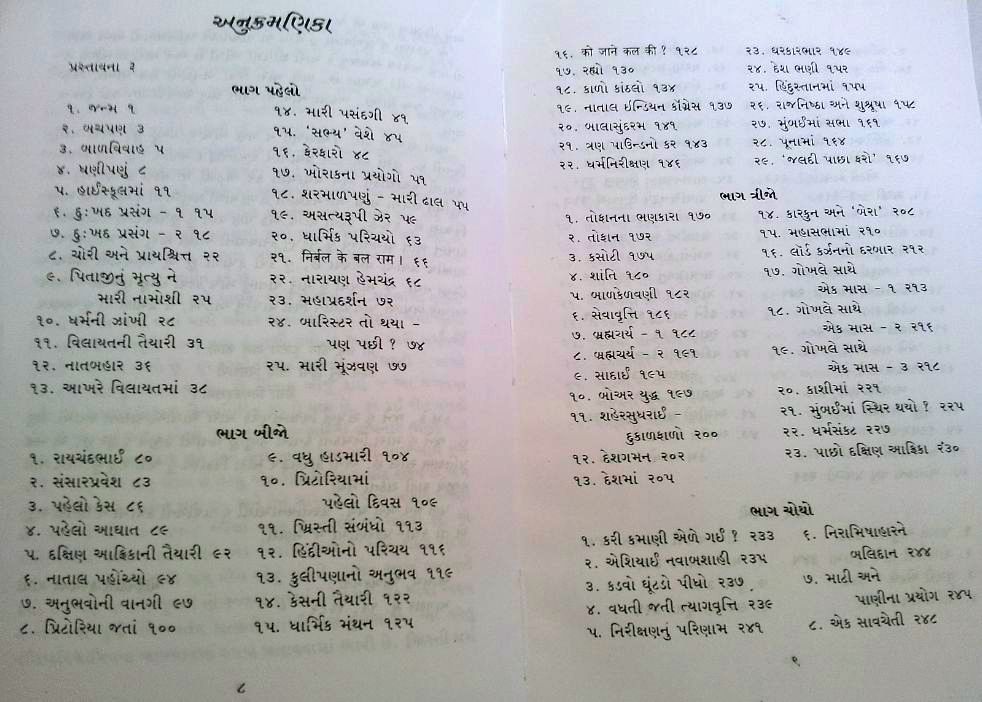 અનુક્રમણિકા
પ્રસ્તાવના ૩
ભાગ પહેલો
૧. જન્મ ૧
૨. બચપણ ૩
૩. બાળવિવાહ ૫
૪. ધણીપણું ૮
૫. હાઈસ્કૂલમાં ૧૧
૬. દુઃખદ પ્રસંગ - ૧ ૧૫
૭. દુઃખદ પ્રસંગ - ૨ ૧૮
૮. ચોરી અને પ્રાયશ્ચિત્ત ૨૨
૯. પિતાજીનું મૃત્યુ ને
મારી નામોશી ૨૫
૧૦. ધર્મની ઝાંખી ૨૮
૧૧. વિલાયતની તૈયારી ૩૧
૧૨. નાતબહાર ૩૬
૧૩. આખરે વિલાયતમાં ૩૮
૧૪. મારી પસંદગી ૪૧
૧૫. ‘સભ્ય’ વેશે ૪૫
૧૬. ફેરફારો ૪૮
૧૭. ખોરાકના પ્રયોગો ૫૧
૧૮. શરમાળપણું - મારી ઢાલ ૫૫
૧૯. અસત્યરૂપી ઝેર ૫૯
૨૦. ધાર્મિક પરિચયો ૬૩
૨૧. નિર્બલ કે બલ રામ। ૬૬
૨૨. નારાયણ હેમચંદ્ર ૬૮
૨૩. મહાપ્રદર્શન ૭૨
૨૪. બારિસ્ટર તો થયા -
પણ પછી ? ૭૪
૨૫. મારી મૂંઝવણ ૭૭
ભાગ બીજો
૧. રાયચંદભાઈ ૮૦
૨. સંસારપ્રવેશ ૮૩
૩. પહેલો કેસ ૮૬
૪. પહેલો આઘાત ૮૯
૫. દક્ષિણ આફ્રિકાની તૈયારી ૯૨
૬. નાતાલ પહોંચ્યો ૯૪
૭. અનુભવોની વાનગી ૯૭
૮. પ્રિટોરિયા જતાં ૧૦૦
૯. વધુ હાડમારી ૧૦૪
૧૦. પ્રિટોરિયામાં
પહેલો દિવસ ૧૦૯
૧૧. ખ્રિસ્તી સંબંધો ૧૧૩
૧૨. હિંદીઓનો પરિચય ૧૧૬
૧૩. કુલીપણાનો અનુભવ ૧૧૯
૧૪. કેસની તૈયારી ૧૨૨
૧૫. ધાર્મિક મંથન ૧૨૫
૮
૧૬. को जाने कल की ? ૧૨૮
૧૭. રહ્યો ૧૩૦
૧૮. કાળો કાંઠલો ૧૩૪
૧૯. નાતાલ ઇન્ડિયન કૉંગ્રેસ ૧૩૭
૨૦. બાલાસુંદરમ ૧૪૧
૨૧. ત્રણ પાઉન્ડનો કર ૧૪૩
૨૨. ધર્મનિરીક્ષણ ૧૪૬
૨૩. ઘરકારભાર ૧૪૯
૨૪. દેશ ભણી ૧૫૨
૨૫. હિંદુસ્તાનમાં ૧૫૫
૨૬. રાજનિષ્ઠા અને શુશ્રૂષા ૧૫૮
૨૭. મુંબઈમાં સભા ૧૬૧
૨૮. પૂનામાં ૧૬૪
૨૯. ‘જલદી પાછા ફરો’ ૧૬૭
ભાગ ત્રીજો
૧. તોફાનના ભણકારા ૧૭૦
૨. તોફાન ૧૭૨
૩. કસોટી ૧૭૫
૪. શાંતિ ૧૮૦
૫. બાળકેળવણી ૧૮૨
૬. સેવાવૃત્તિ ૧૮૬
૭. બ્રહ્મચર્ય - ૧ ૧૮૮
૮. બ્રહ્મચર્ય - ૨ ૧૯૧
૯. સાદાઈ ૧૯૫
૧૦. બોઅર યુદ્ધ ૧૯૭
૧૧. શહેરસુધરાઈ -
દુકાળફાળો ૨૦૦
૧૨. દેશગમન ૨૦૨
૧૩. દેશમાં ૨૦૫
૧૪. કારકુન અને ‘બેરા’ ૨૦૮
૧૫. મહાસભામાં ૨૧૦
૧૬. લૉર્ડ કર્ઝનનો દરબાર ૨૧૨
૧૭. ગોખલે સાથે
એક માસ - ૧ ૨૧૩
૧૮. ગોખલે સાથે
એક માસ - ૨ ૨૧૬
૧૯. ગોખલે સાથે
એક માસ - ૩ ૨૧૮
૨૦. કાશીમાં ૨૨૧
૨૧. મુંબઈમાં સ્થિર થયો ? ૨૨૫
૨૨. ધર્મસંકટ ૨૨૭
૨૩. પાછો દક્ષિણ આફ્રિકા ૨૩૦
ભાગ ચોથો
૧. કરી કમાણી એળે ગઈ ? ૨૩૩
૨. એશિયાઈ નવાબશાહી ૨૩૫
૩. કડવો ઘૂંટડો પીધો ૨૩૭
૪. વધતી જતી ત્યાગવૃત્તિ ૨૩૯
૫. નિરીક્ષણનું પરિણામ ૨૪૧
૬. નિરામિષાહારને
બલિદાન ૨૪૪
૭. માટી અને
પાણીના પ્રયોગ ૨૪૫
૮. એક સાવચેતી ૨૪૮
૯